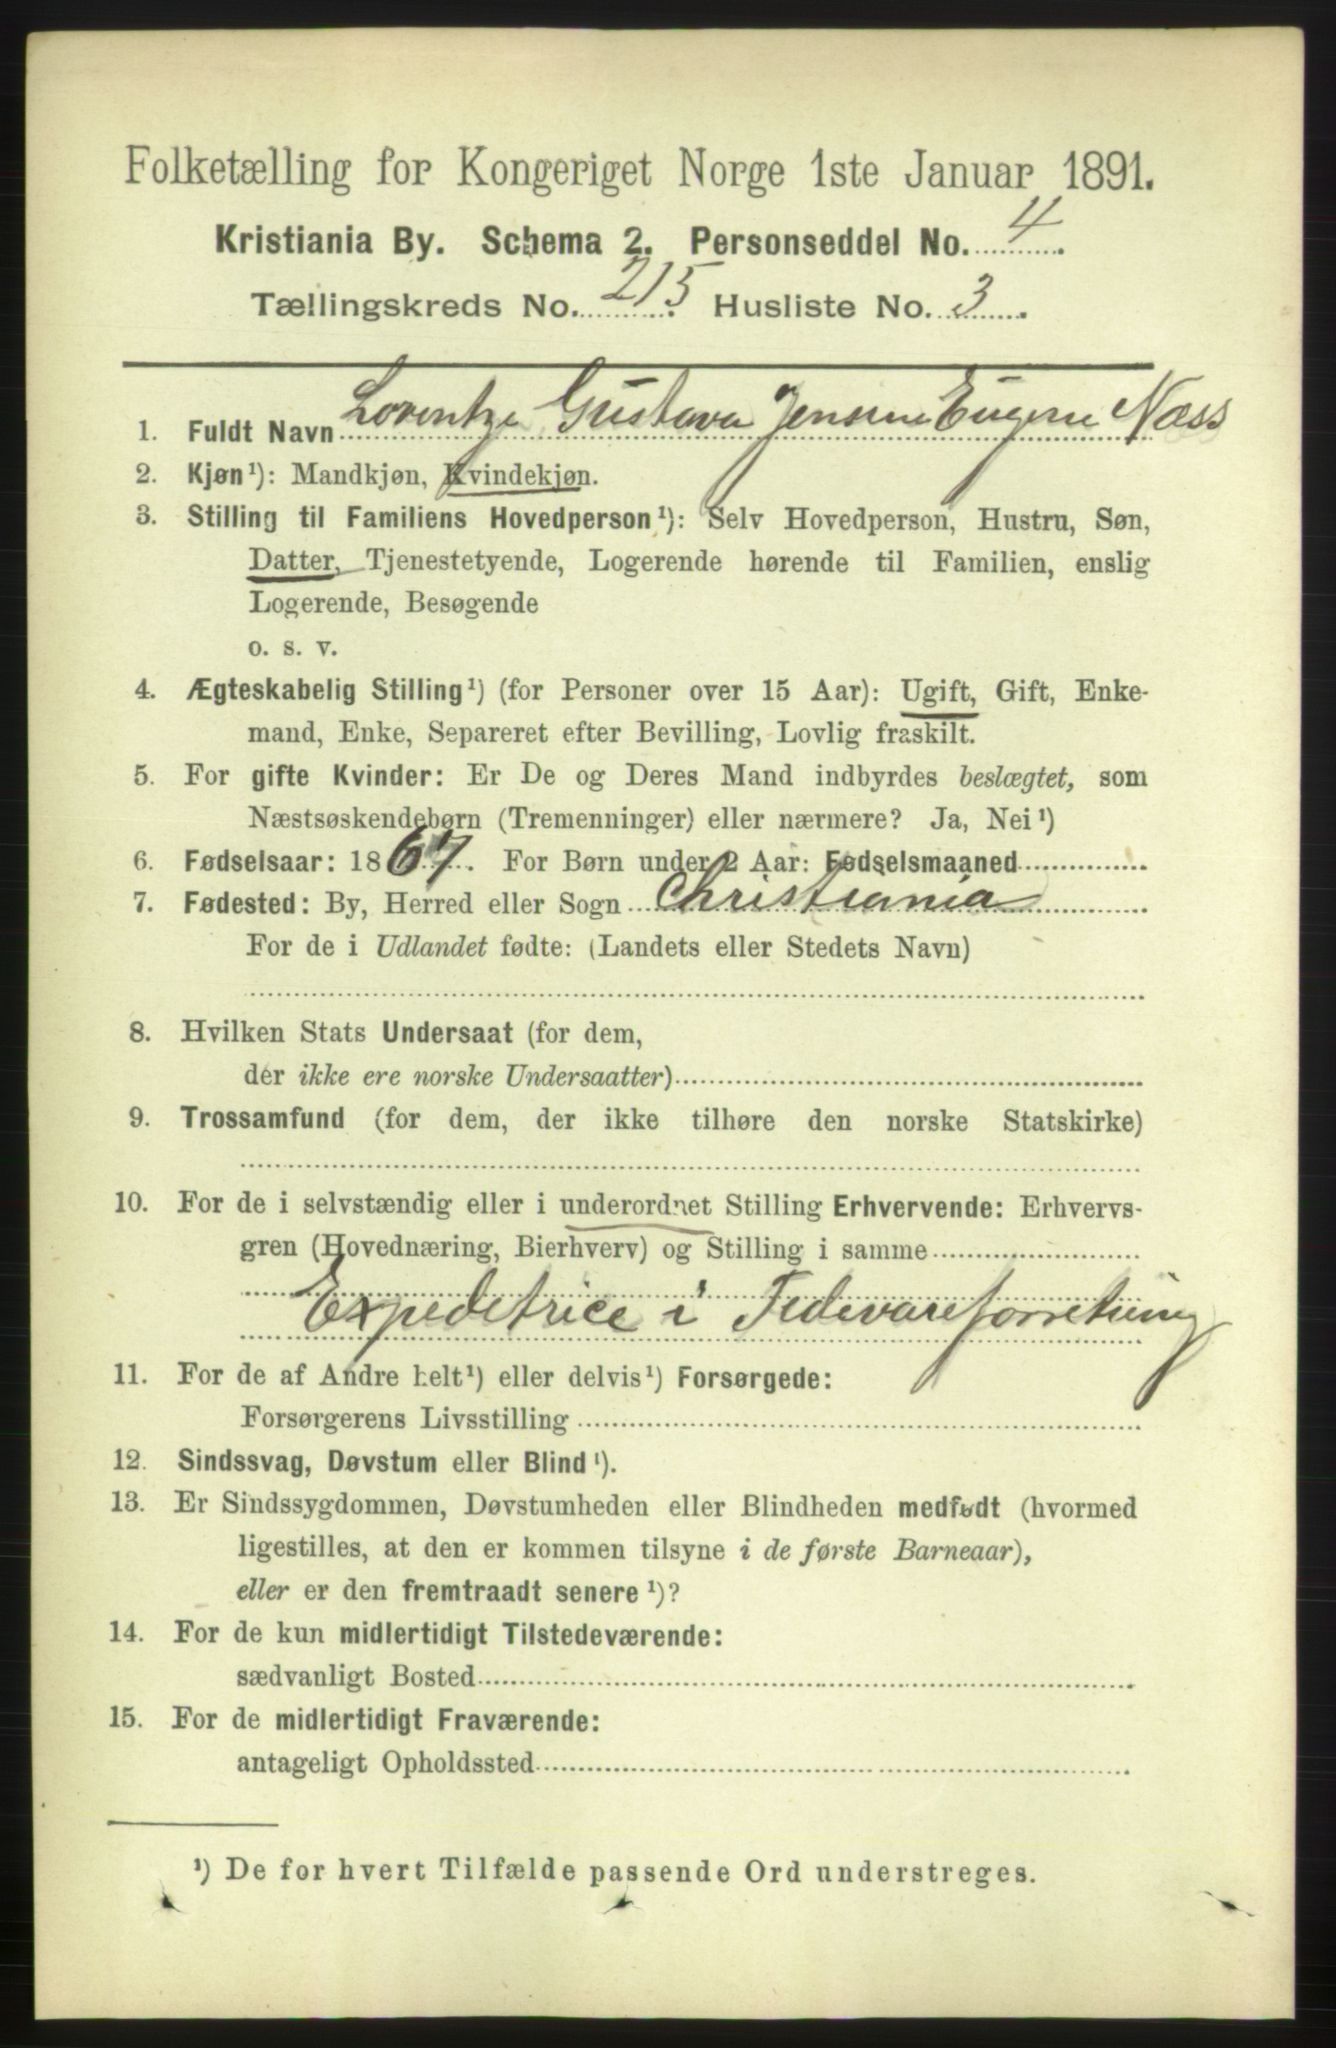 Folketælling for Kongeriget Norge 1ste Januar 1891.
Kristiania By. Schema 2. Personseddel No. 4.
Tællingskreds No. 215. Husliste No. 3.
1. Fuldt Navn Lorentze Gustava Jensine Eugene Næss
2. Kjøn¹): Mandkjøn, Kvindekjøn.
3. Stilling til Familiens Hovedperson¹): Selv Hovedperson, Hustru, Søn,
Datter, Tjenestetyende, Logerende hørende til Familien, enslig
Logerende, Besøgende
o. s. v.
4. Ægteskabelig Stilling¹) (for Personer over 15 Aar): Ugift, Gift, Enke-
mand, Enke, Separeret efter Bevilling, Lovlig fraskilt.
5. For gifte Kvinder: Er De og Deres Mand indbyrdes beslægtet, som
Næstsøskendebørn (Tremenninger) eller nærmere? Ja, Nei¹)
6. Fødselsaar: 1867. For Børn under 2 Aar: Fødselsmaaned
7. Fødested: By, Herred eller Sogn Christiania
For de i Udlandet fødte: (Landets eller Stedets Navn)
8. Hvilken Stats Undersaat (for dem,
der ikke ere norske Undersaatter)
9. Trossamfund (for dem, der ikke tilhøre den norske Statskirke)
10. For de i selvstændig eller i underordnet Stilling Erhvervende: Erhvervs-
gren (Hovednæring, Bierhverv) og Stilling i samme
Expeditrice i Fedevareforretning
11. For de af Andre helt¹) eller delvis¹) Forsørgede:
Forsørgerens Livsstilling
12. Sindssvag, Døvstum eller Blind¹).
13. Er Sindssygdommen, Døvstumheden eller Blindheden medfødt (hvormed
ligestilles, at den er kommen tilsyne i de første Barneaar),
eller er den fremtraadt senere¹)?
14. For de kun midlertidigt Tilstedeværende:
sædvanligt Bosted
15. For de midlertidigt Fraværende:
antageligt Opholdssted
¹) De for hvert Tilfælde passende Ord understreges.